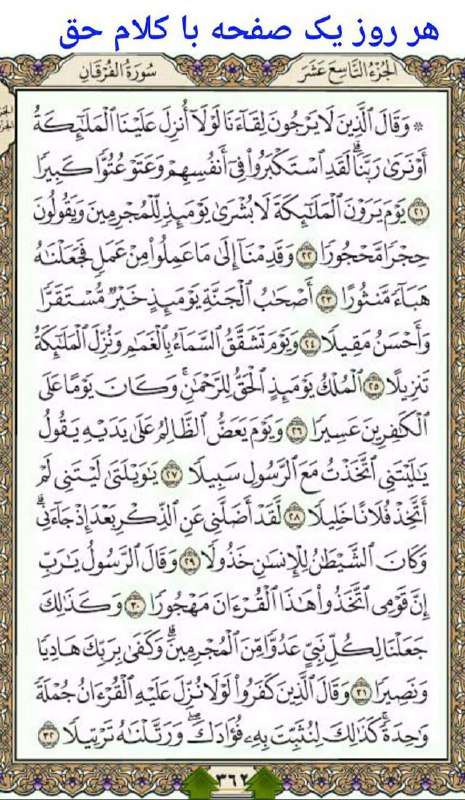 هر روز یک صفحه با کلام حق
الجُزْءُ التَّاسِعَ عَشَرَ سُورَةُ الفُرْقَانِ
۞ وَقَالَ ٱلَّذِينَ لَا يَرْجُونَ لِقَآءَنَا لَوْلَآ أُنزِلَ عَلَيْنَا ٱلْمَلَـٰٓئِكَةُ
أَوْ نَرَىٰ رَبَّنَا ۗ لَقَدِ ٱسْتَكْبَرُوا۟ فِىٓ أَنفُسِهِمْ وَعَتَوْ عُتُوًّا كَبِيرًا
٢١ يَوْمَ يَرَوْنَ ٱلْمَلَـٰٓئِكَةَ لَا بُشْرَىٰ يَوْمَئِذٍ لِّلْمُجْرِمِينَ وَيَقُولُونَ
حِجْرًا مَّحْجُورًا ٢٢ وَقَدِمْنَآ إِلَىٰ مَا عَمِلُوا۟ مِنْ عَمَلٍ فَجَعَلْنَـٰهُ
هَبَآءً مَّنثُورًا ٢٣ أَصْحَـٰبُ ٱلْجَنَّةِ يَوْمَئِذٍ خَيْرٌ مُّسْتَقَرًّا
وَأَحْسَنُ مَقِيلًا ٢٤ وَيَوْمَ تَشَقَّقُ ٱلسَّمَآءُ بِٱلْغَمَـٰمِ وَنُزِّلَ ٱلْمَلَـٰٓئِكَةُ
تَنزِيلًا ٢٥ ٱلْمُلْكُ يَوْمَئِذٍ ٱلْحَقُّ لِلرَّحْمَـٰنِ ۚ وَكَانَ يَوْمًا عَلَى
ٱلْكَـٰفِرِينَ عَسِيرًا ٢٦ وَيَوْمَ يَعَضُّ ٱلظَّالِمُ عَلَىٰ يَدَيْهِ يَقُولُ
يَـٰلَيْتَنِى ٱتَّخَذْتُ مَعَ ٱلرَّسُولِ سَبِيلًا ٢٧ يَـٰوَيْلَتَىٰ لَيْتَنِى لَمْ
أَتَّخِذْ فُلَانًا خَلِيلًا ٢٨ لَّقَدْ أَضَلَّنِى عَنِ ٱلذِّكْرِ بَعْدَ إِذْ جَآءَنِى ۗ
وَكَانَ ٱلشَّيْطَـٰنُ لِلْإِنسَـٰنِ خَذُولًا ٢٩ وَقَالَ ٱلرَّسُولُ يَـٰرَبِّ
إِنَّ قَوْمِى ٱتَّخَذُوا۟ هَـٰذَا ٱلْقُرْءَانَ مَهْجُورًا ٣٠ وَكَذَٰلِكَ
جَعَلْنَا لِكُلِّ نَبِىٍّ عَدُوًّا مِّنَ ٱلْمُجْرِمِينَ ۗ وَكَفَىٰ بِرَبِّكَ هَادِيًا
وَنَصِيرًا ٣١ وَقَالَ ٱلَّذِينَ كَفَرُوا۟ لَوْلَا نُزِّلَ عَلَيْهِ ٱلْقُرْءَانُ جُمْلَةً
وَٰحِدَةً ۚ كَذَٰلِكَ لِنُثَبِّتَ بِهِۦ فُؤَادَكَ ۖ وَرَتَّلْنَـٰهُ تَرْتِيلًا ٣٢
٣٦٢